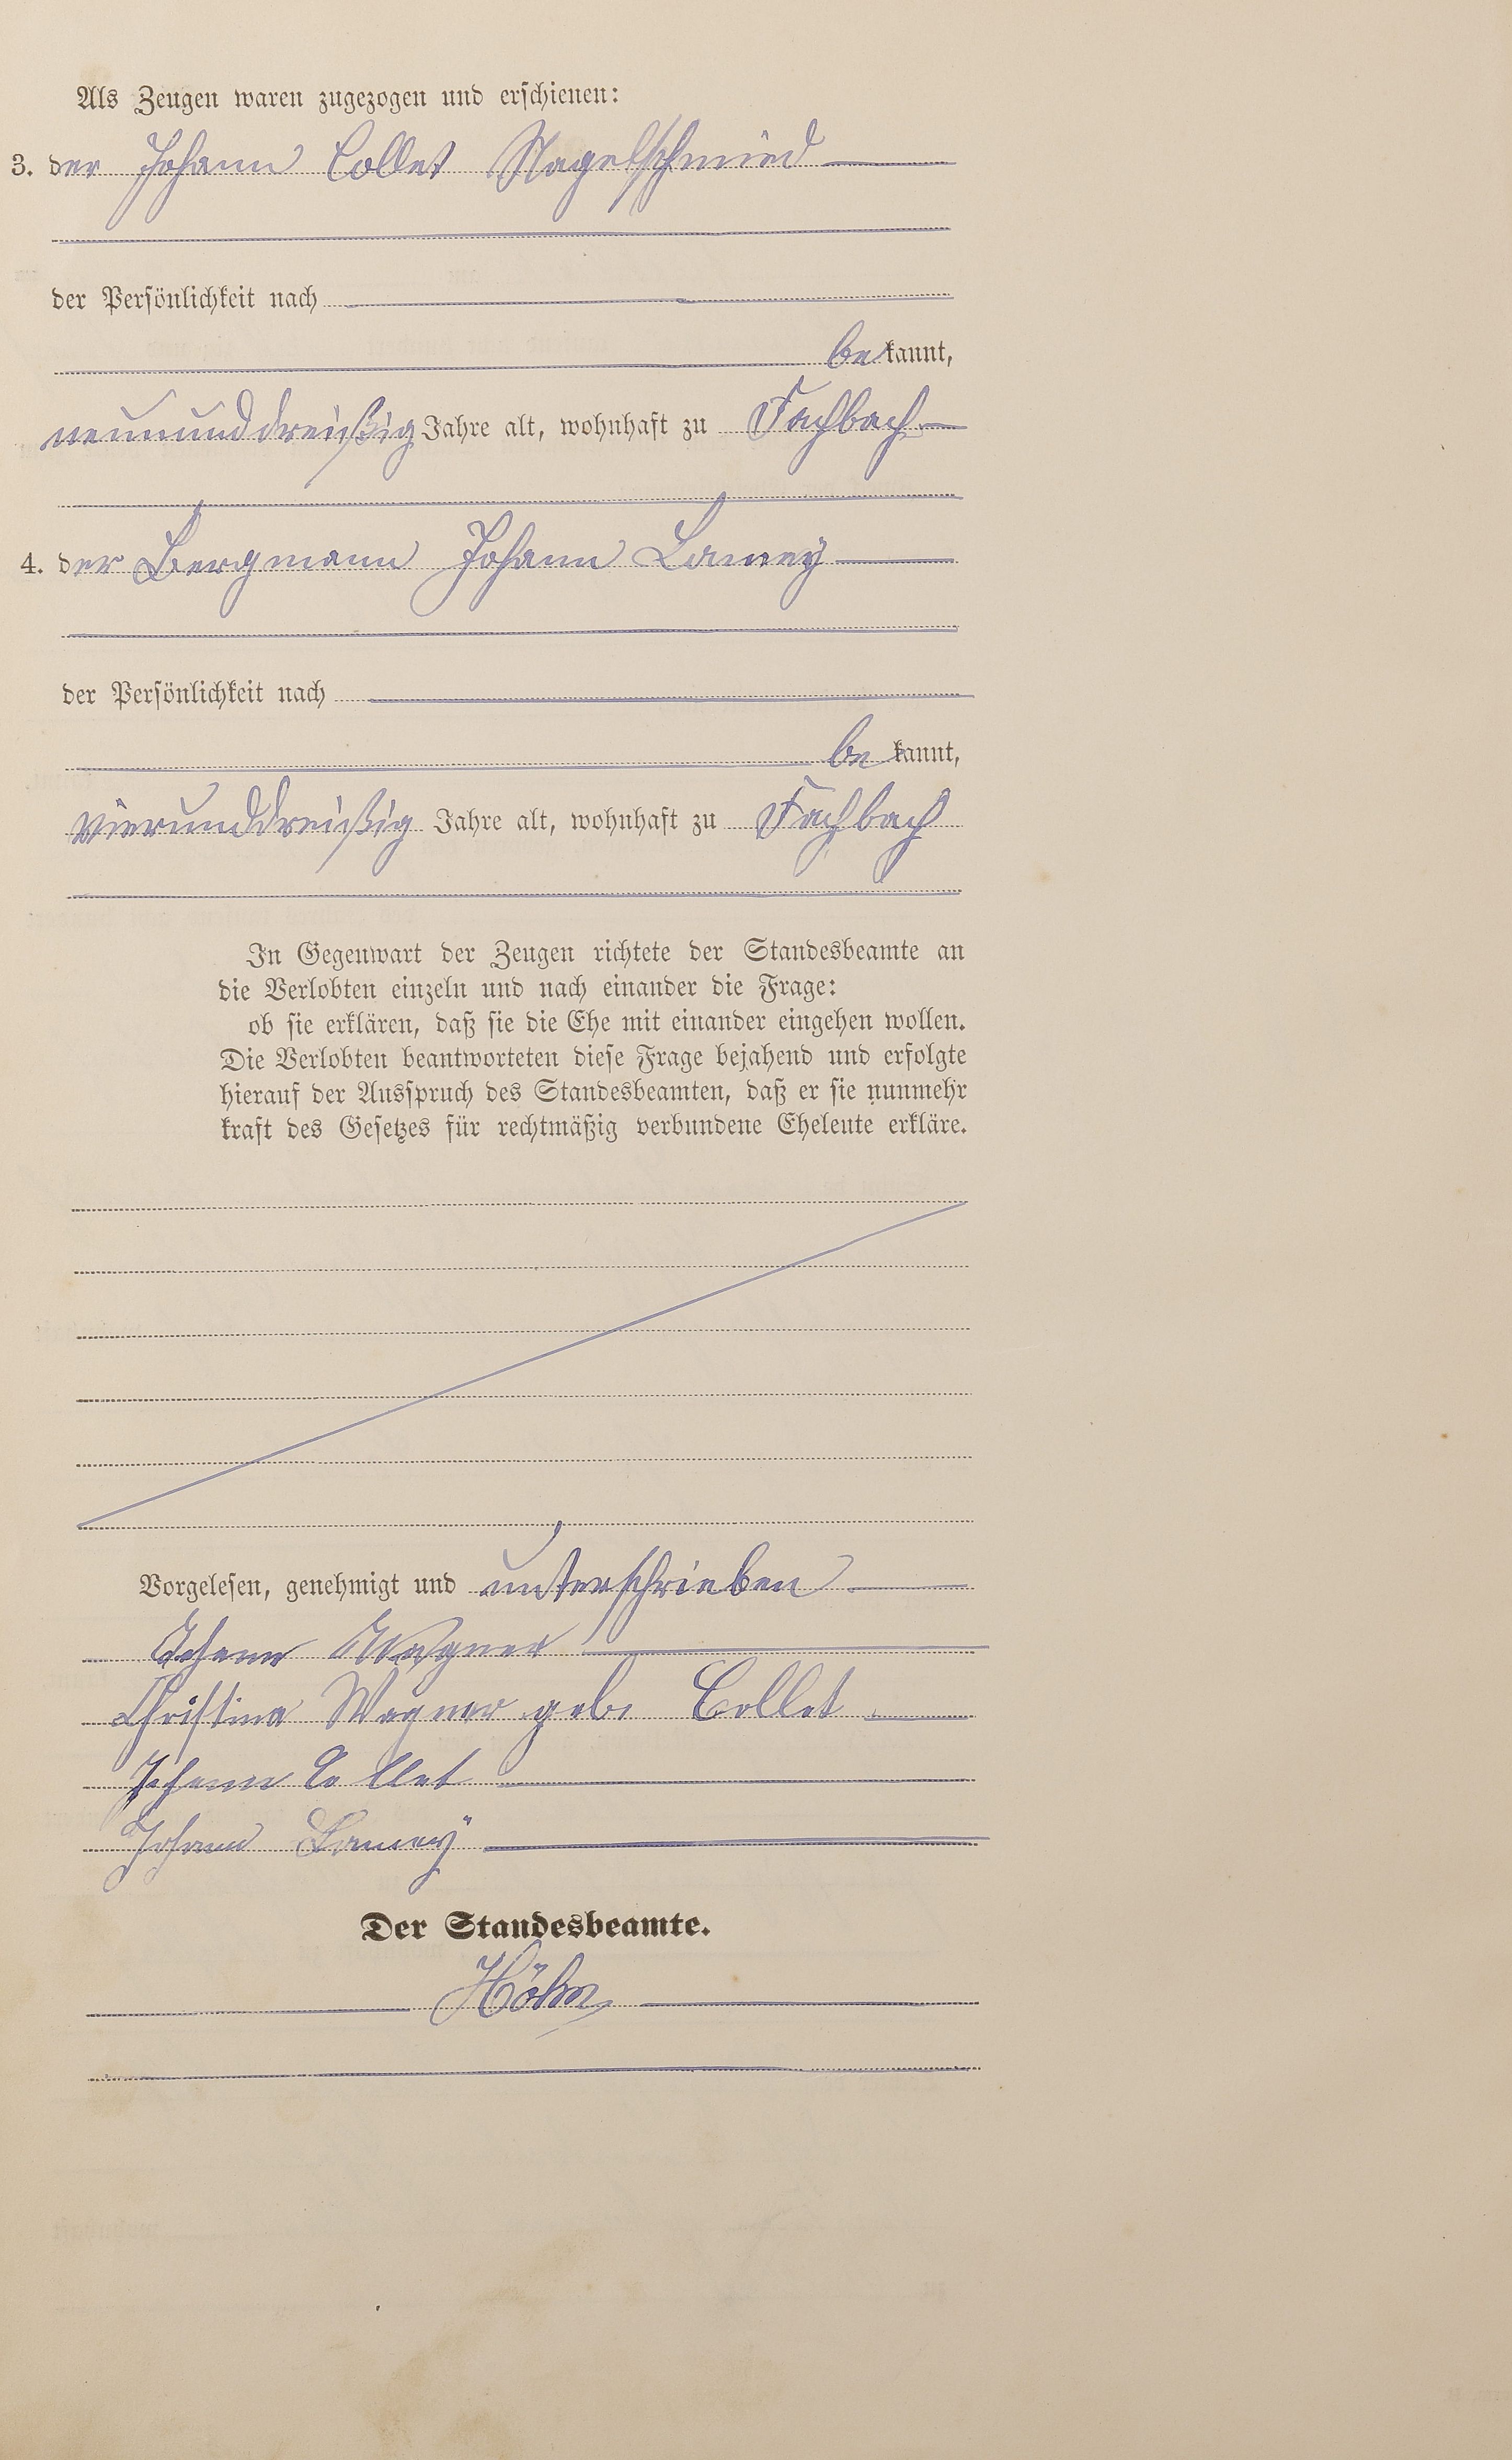 Als Zeugen waren zugezogen und erschienen:
3. der Johann Collet Nagelschmied
der Persönlichkeit nach
bekannt,
neununddreißig Jahre alt, wohnhaft zu Fachbach
4. der Bergmann Johann Lamey
der Persönlichkeit nach
bekannt,
vierunddreißig Jahre alt, wohnhaft zu Fachbach
In Gegenwart der Zeugen richtete der Standesbeamte an
die Verlobten einzeln und nach einander die Frage:
ob sie erklären, daß sie die Ehe mit einander eingehen wollen.
Die Verlobten beantworteten diese Frage bejahend und erfolgte
hierauf der Ausspruch des Standesbeamten, daß er sie nunmehr
kraft des Gesetzes für rechtmäßig verbundene Eheleute erkläre.
Vorgelesen, genehmigt und unterschrieben
Johann Wagner
Christina Wagner geb. Collet
Johann Collet
Johann Lamey
Der Standesbeamte.
Höhn